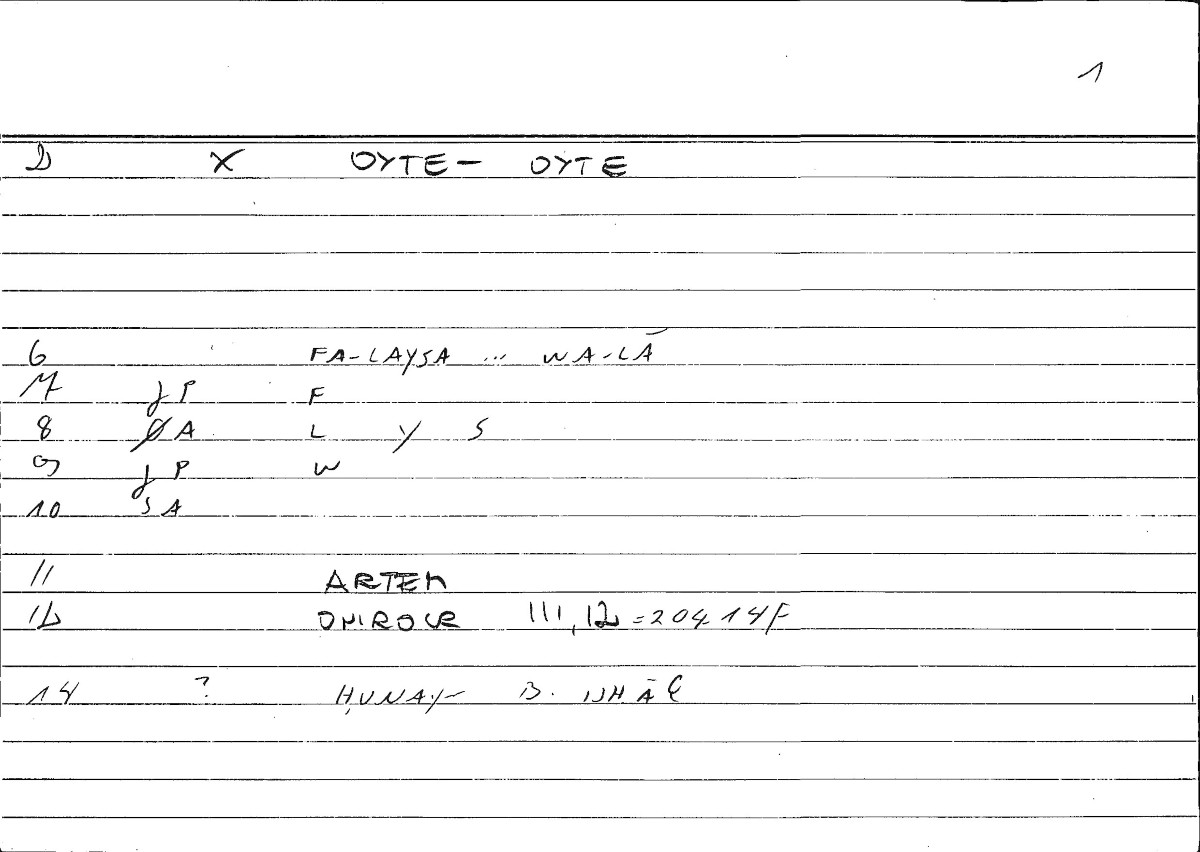 1
2 X OYTE- OYTE
6 FA-LAYSA ... WA-LĀ
7 JP F
8 ØA L Y S
9 JP W
10 SA
11 ARTEM
12 ONIROCR III,12 = 204.14F
14 ? ḤUNAYN B. ISHĀQ